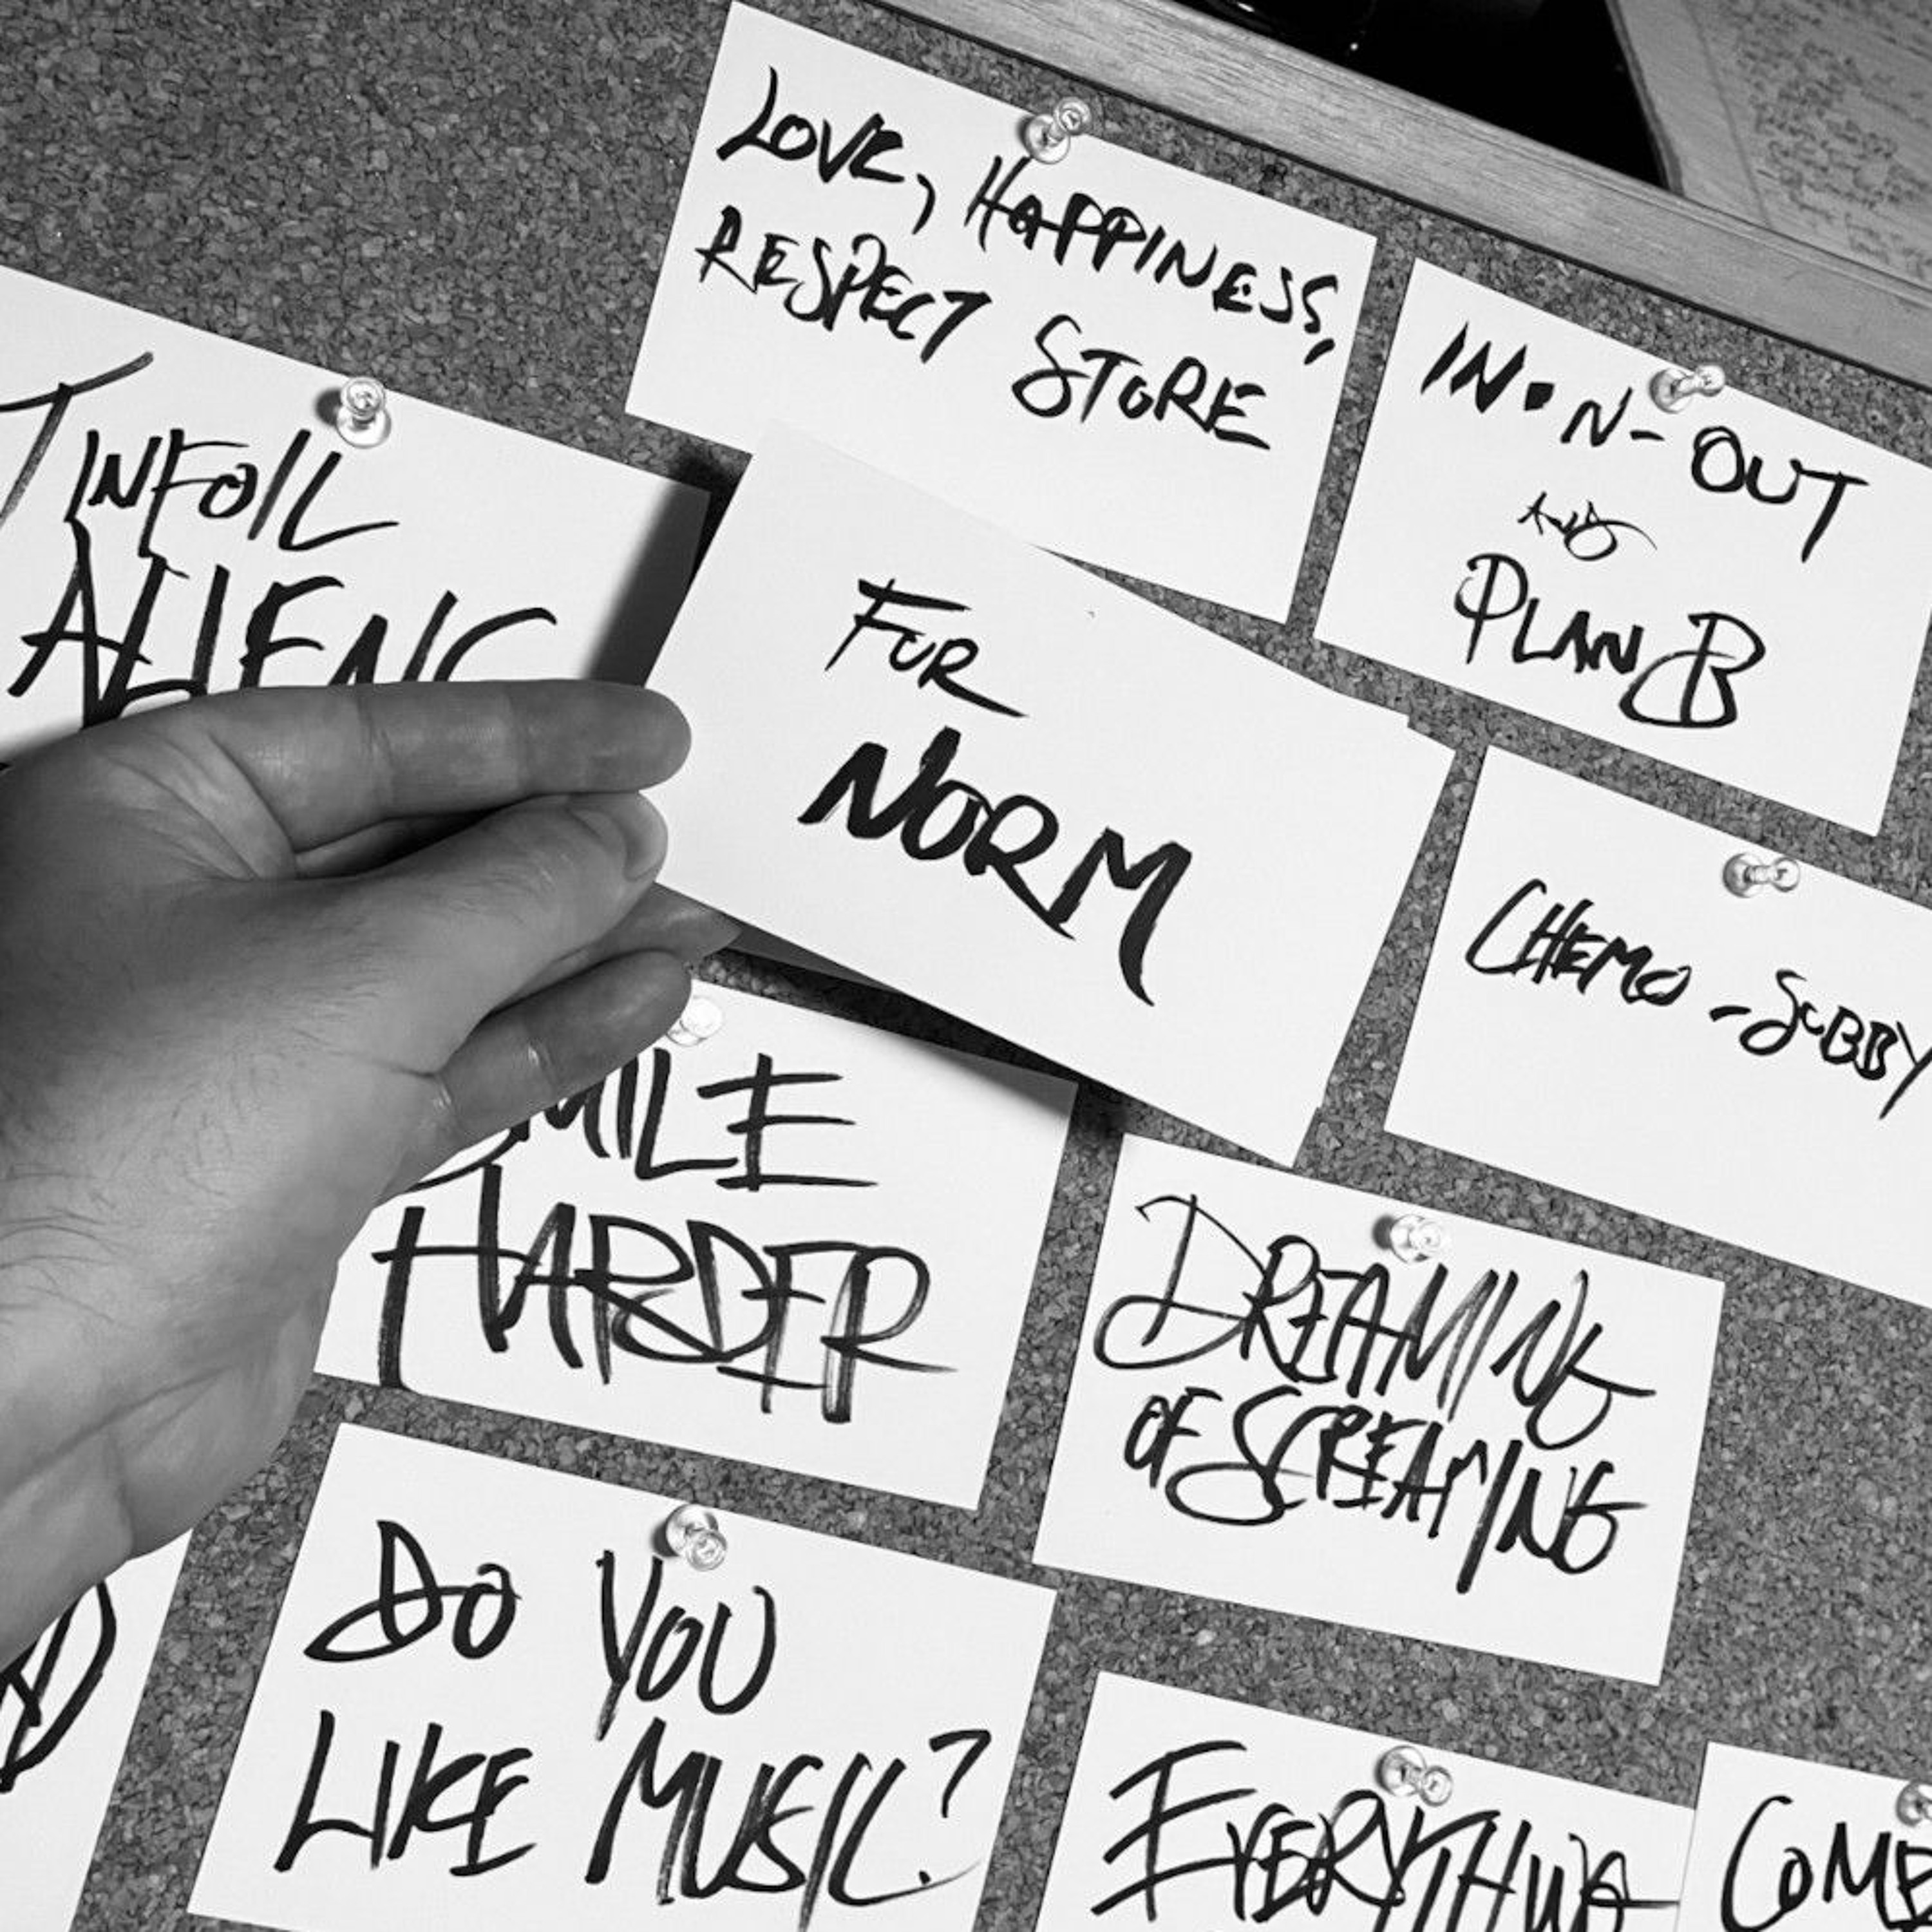 LOVE, HAPPINESS,
RESPECT STORE
IN-N-OUT
AND
PLAN B
TINFOIL
ALIENS
FOR
NORM
CHEMO-SOBBY
SMILE
HARDER
DREAMING
OF SCREAMING
DO YOU
LIKE MUSIC?
EVERYTHING